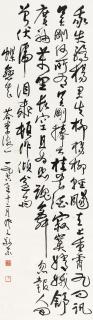 我失骄杨君失柳杨柳轻飏直上重霄九问讯
吴刚何所有吴刚捧出桂花酒寂寞嫦娥舒
广袖万里长空且为忠魂舞忽报人间
曾伏虎泪飞顿作倾盆雨
蝶恋花 答李淑一